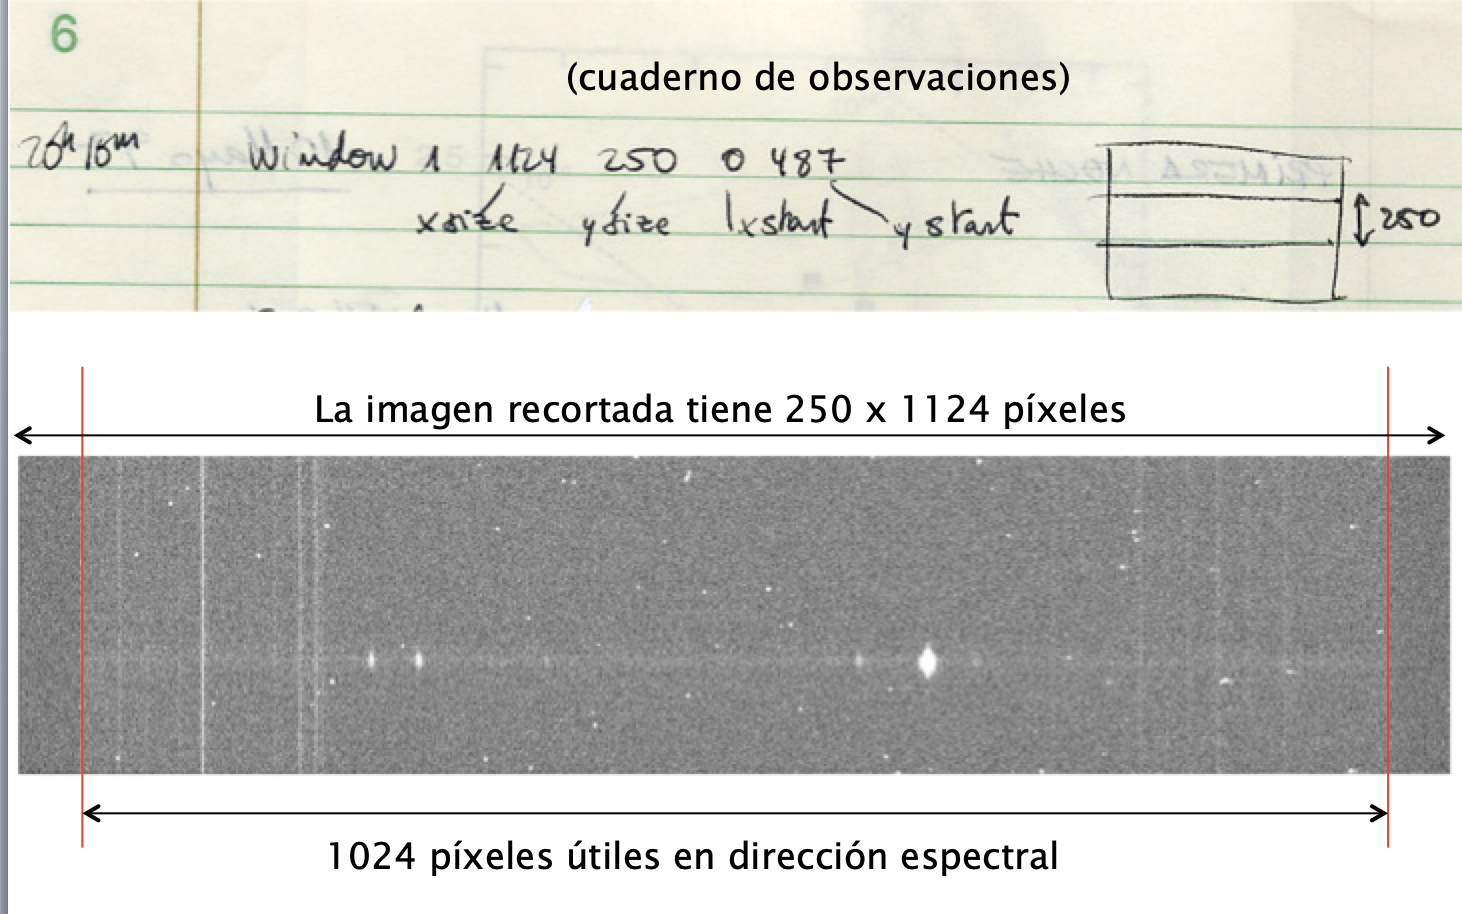 6
(cuaderno de observaciones)
20h 15m Window 1 1124 250 0 487
xsize ysize xstart y start
250
La imagen recortada tiene 250 x 1124 píxeles
1024 píxeles útiles en dirección espectral